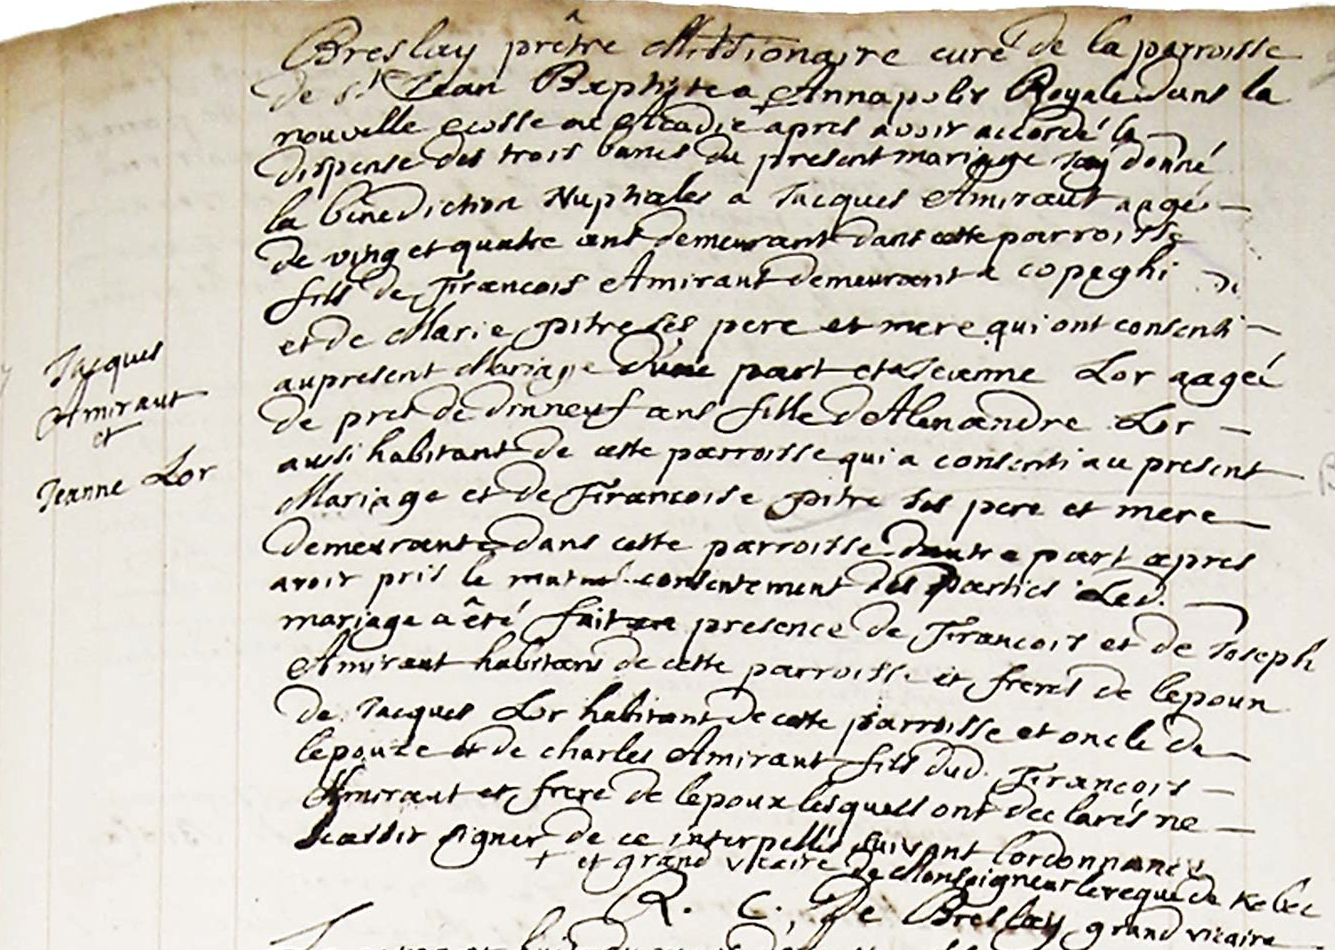 Breslay prêtre Missionaire curé de la parroisse
de St Jean Baptiste a Annapolis Royale dans la
nouvelle ecosse ou Acadie apres avoir accordé la
dispense des trois bancs du present mariage iay donné
la benediction Nuptiales a Jacques Amiraut aagé
de ving et quatre ans demeurant dans cette parroisse
fils de Francois Amiraut demeurant a copeghi
et de Marie pitre ses pere et mere qui ont consenti
au present Mariage d'une part et a Jeanne Lor aageé
de pret de dixneuf ans fille d'Alexandre Lor
aussi habitant de cette parroisse qui a consenti au present
Mariage et de Francoise pitre ses pere et mere
demeurants dans cette parroisse dautre part apres
avoir pris le mutuel consentement des parties Led.
mariage a êté fait en presence de Francois et de Joseph
Amiraut habitans de cette parroisse et freres de lepoux
de Jacques Lor habitant de cette parroisse et oncle de
lepouze et de charles Amiraut fils dud. Francois
Amiraut et frere de lepoux lesquels ont declarés ne
scavoir signer de ce interpellés suivant lordonnance
+ et grand vicaire de Monseigneur leveque de Kebec
R. C. De Breslay grand vicaire
Jacques
Amiraut
et
Jeanne Lor